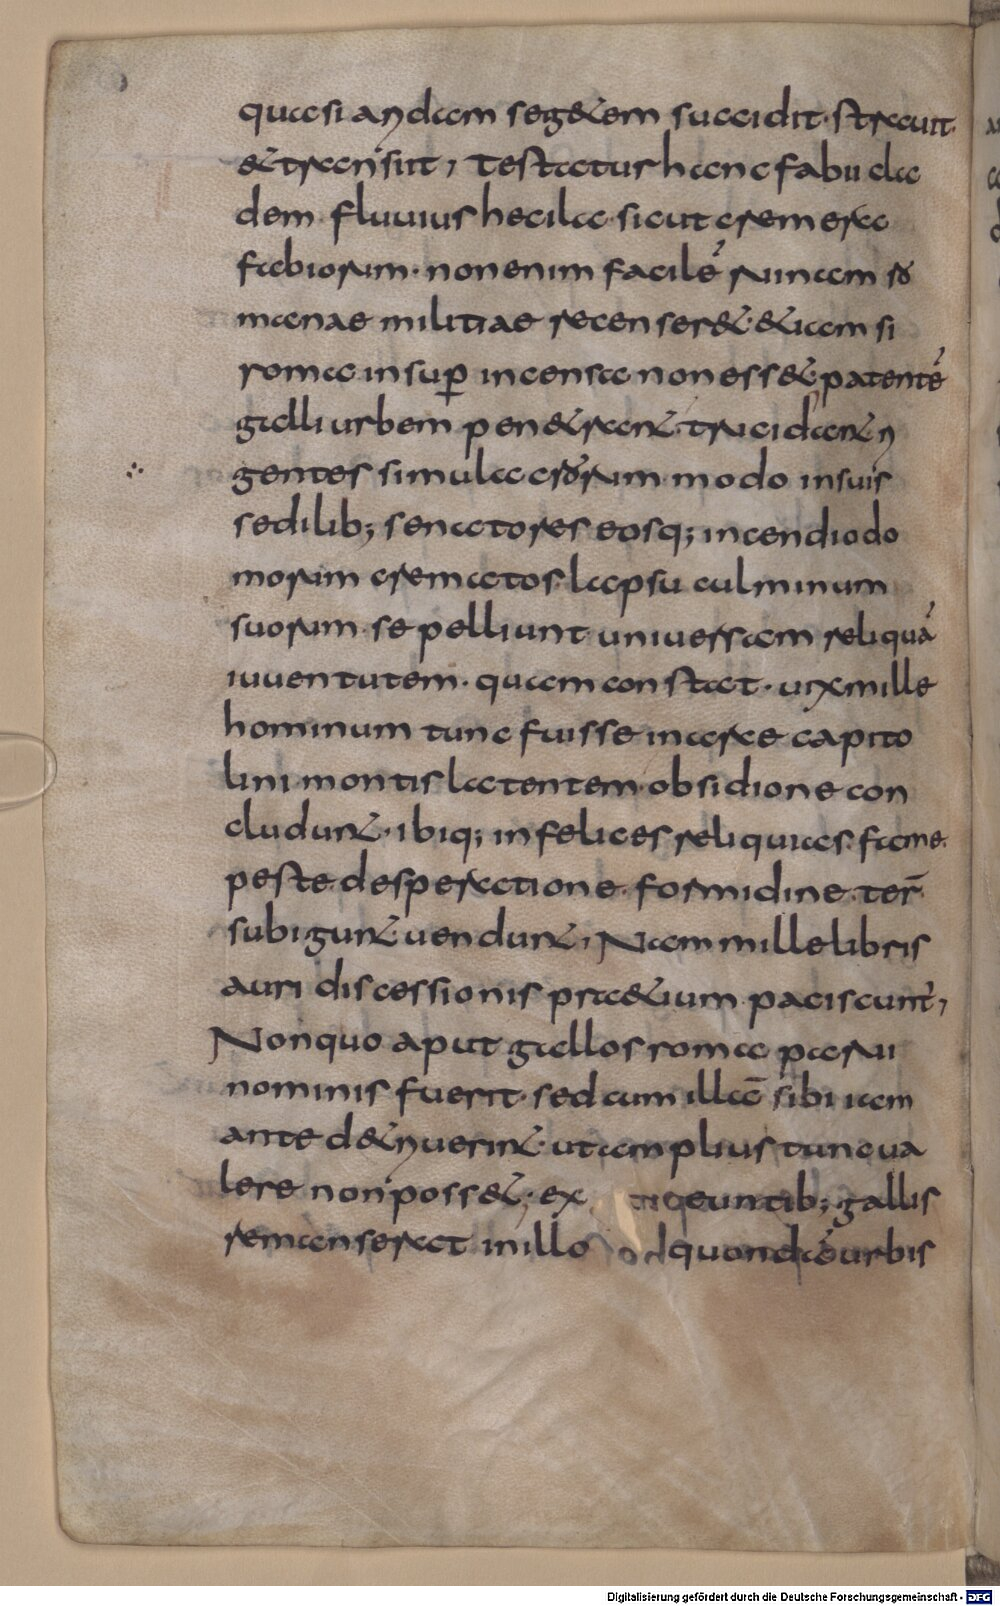 quasi aridam seg&em succidit· strauit·
& transiit, Testatur hanc fabii cla
dem· fluuius hecila· sicut cremera
fabiorum· non enim facile ruinam ro
manae militiae recenser&· &iam si
roma insup incensa non ess&· patente
galli urbem pen&rant· trucidant ri
gentes simulacrorum modo in suis
sedilib; senatores eosq; incendio do
morum crematos· lapsu culminum
suorum· sepelliunt uniuersam reliqua
iuuentutem· quam constat· uix mille
hominum tunc fuisse in arce capito
lini montis latentem· obsidione con
cludunt· ibiq; infelices reliquias· fame·
peste· desperatione· formidine· ter
subigunt uendunt, Nam mille libris
auri discessionis pra&ium paciscunt,
Non quo aput gallos roma parui
nominis fuerit· sed cum illa sibi iam
ante d&riuerint· ut amplius tunc ua
lere non poss&· ex euntib; gallis
remanserat in illo quonda urbis
Digitalisierung gefördert durch die Deutsche Forschungsgemeinschaft - DFG